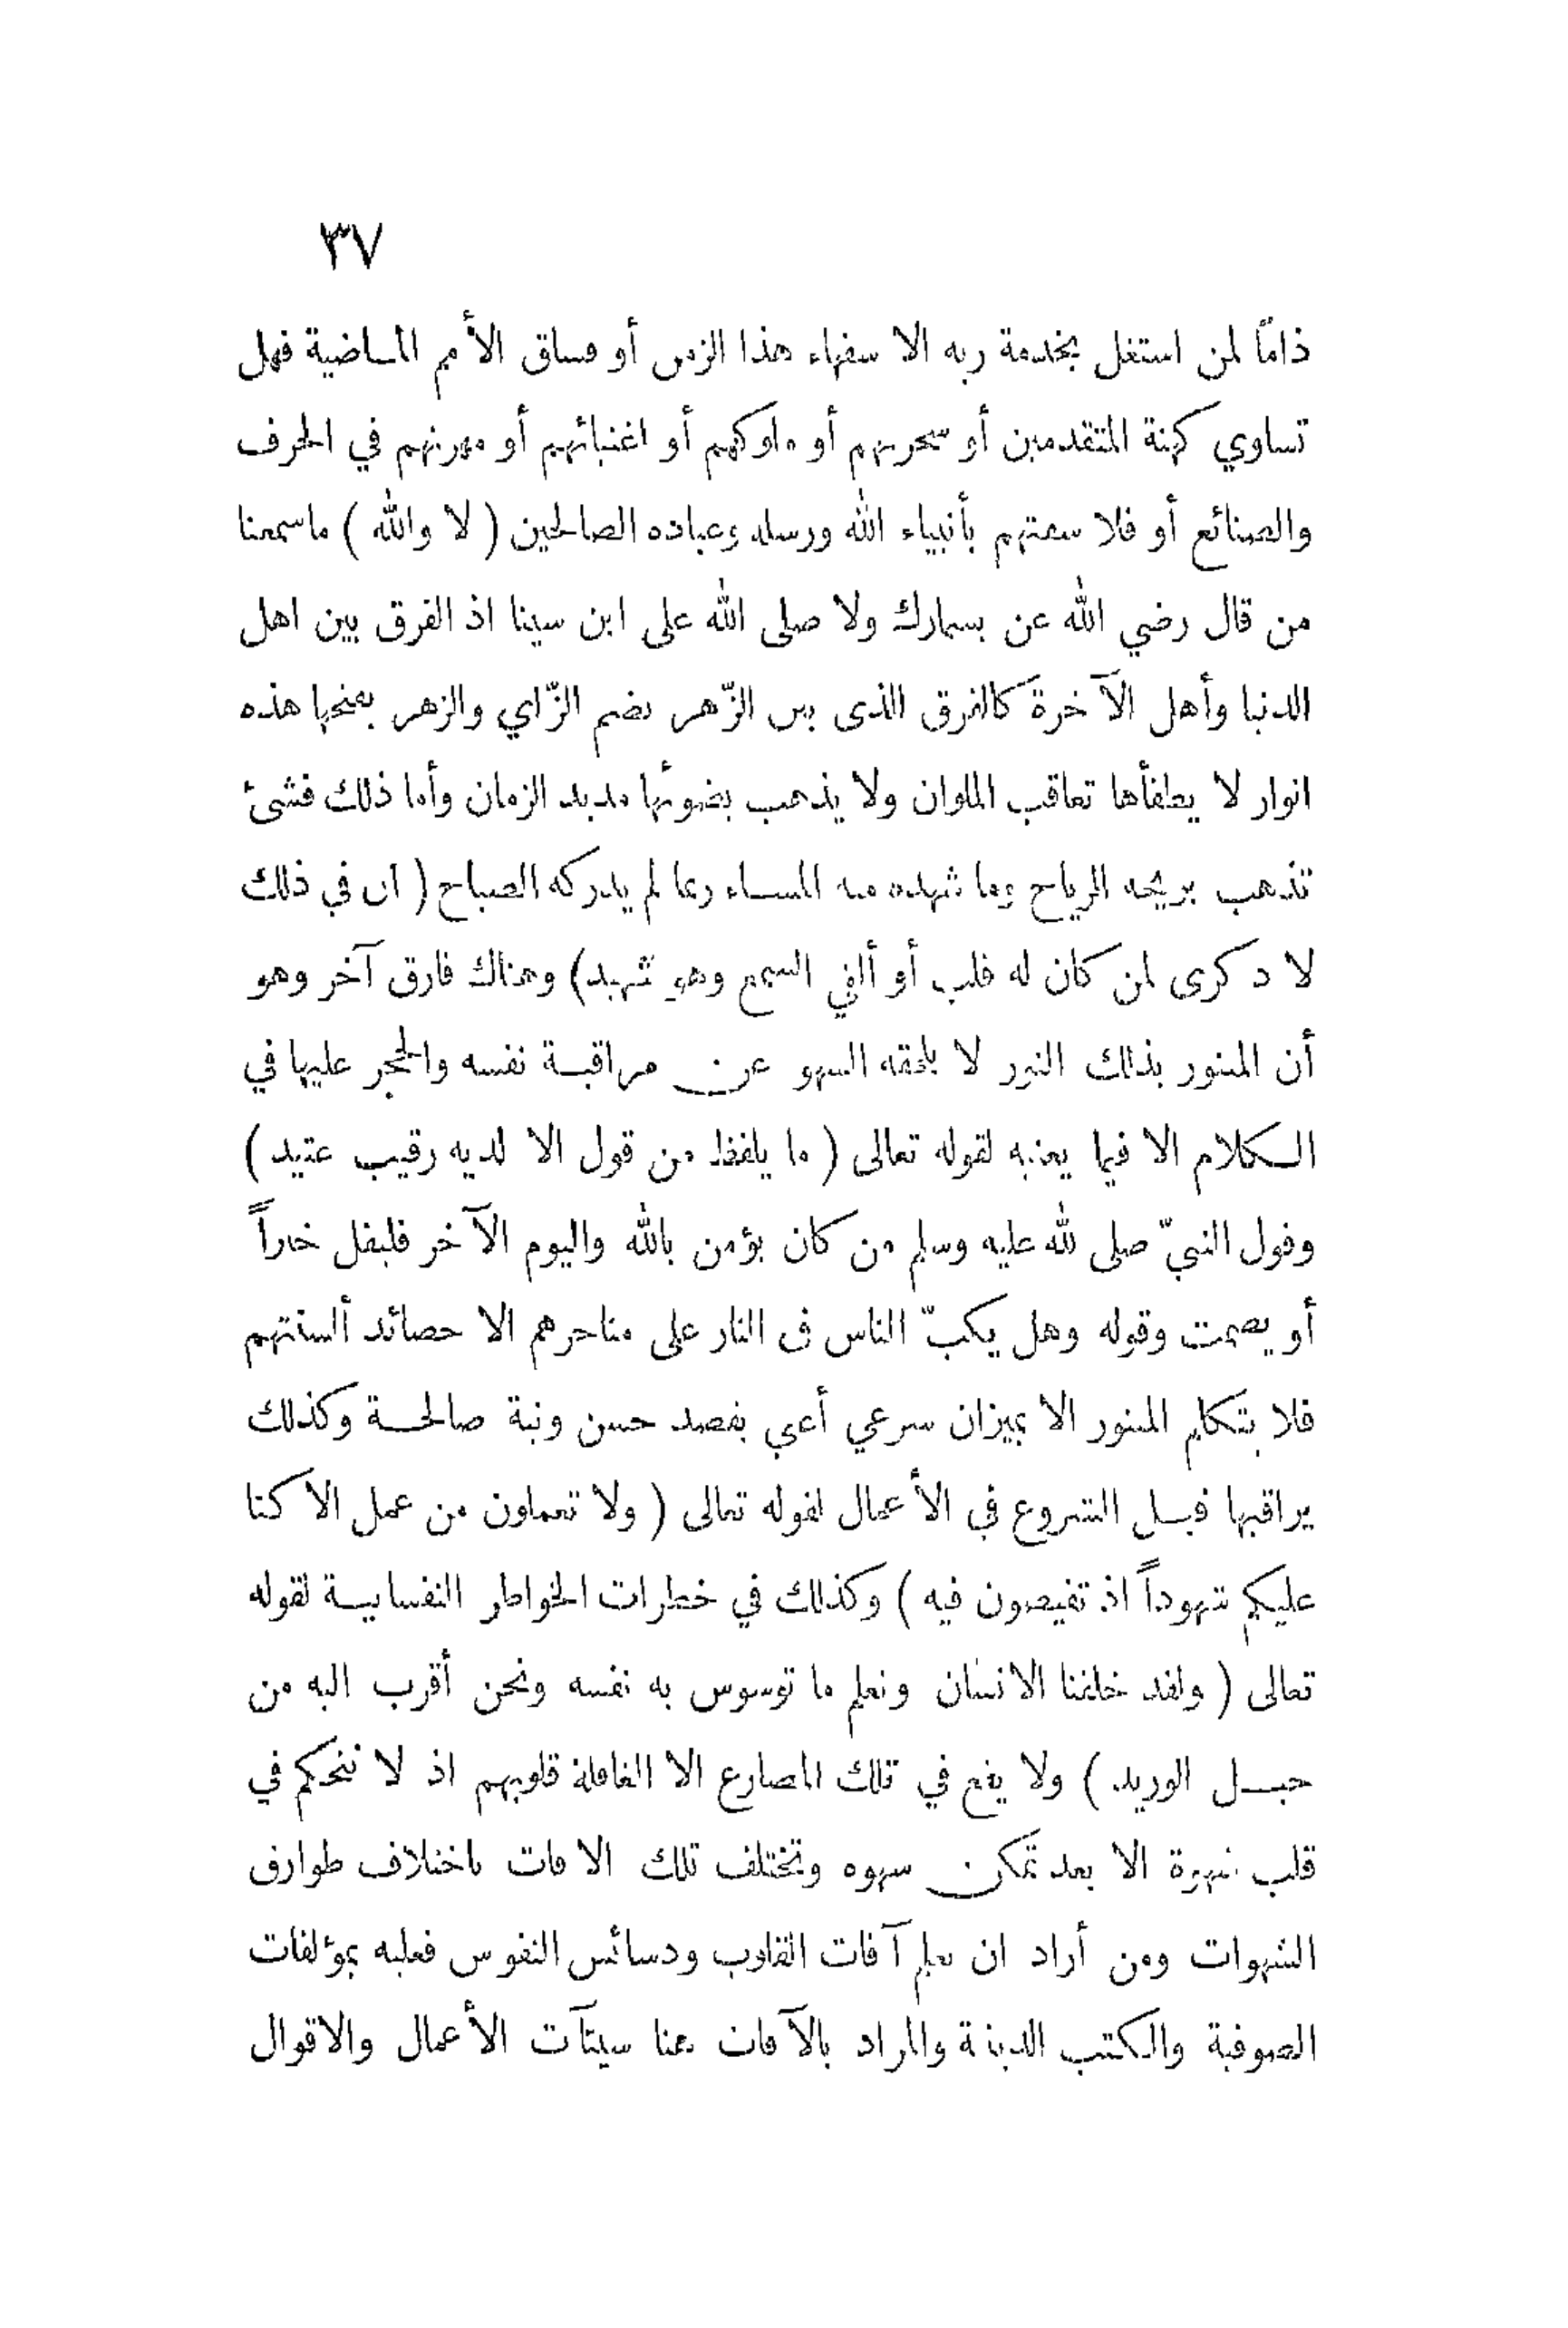 ٣٧
ذامّاً لمن اشتغل بخدمة ربه الا سفهاء هذا الزمن أو فساق الأمم الماضية فهل
تساوي كهنة المتقدمين أو سحرتهم أو ملوكهم أو اغنيائهم أو مهرتهم في الحرف
والصنائع أو فلاسفتهم بأنبياء الله ورسله وعباده الصالحين ( لا والله ) ماسمعنا
من قال رضي الله عن بسمارك ولا صلى الله على ابن سينا اذ الفرق بين اهل
الدنيا وأهل الآخرة كالفرق الذى بين الزّهر بضم الزّاي والزهر بفتحها هذه
انوار لا يطفأها تعاقب الملوان ولا يذهب بضوئها مديد الزمان وأما ذلك فشئ
تذهب بريحه الرياح وما شهده منه المساء ربما لم يدركه الصباح ( ان في ذلك
لا ذكرى لمن كان له قلب أو ألقي السمع وهو شهيد) وهناك فارق آخر وهو
أن المنور بذلك النور لا يلحقه السهو عن مراقبة نفسه والحجر عليها في
الكلام الا فيما يعنيه لقوله تعالى ( ما يلفظ من قول الا لديه رقيب عتيد )
وقول النبيّ صلى لله عليه وسلم من كان يؤمن بالله واليوم الآخر فليقل خيراً
أو يصمت وقوله وهل يكبّ الناس فى النار على مناخرهم الا حصائد ألسنتهم
فلا يتكلم المنور الا بميزان شرعي أعني بقصد حسن ونية صالحة وكذلك
يراقبها قبل الشروع في الأعمال لقوله تعالى ( ولا تعملون من عمل الا كنا
عليكم شهوداً اذ تفيضون فيه ) وكذلك في خطرات الخواطر النفسانية لقوله
تعالى ( ولقد خلقنا الانسان ونعلم ما توسوس به نفسه ونحن أقرب اليه من
حبل الوريد ) ولا يقع في تلك المصارع الا الغافلة قلوبهم اذ لا تتحكم في
قلب شهوة الا بعد تمكن سهوه وتختلف تلك الافات باختلاف طوارق
الشهوات ومن أراد ان يعلم آفات القلوب ودسائس النفوس فعليه بمؤلفات
الصوفية والكتب الدينية والمراد بالآفات هنا سيئآت الأعمال والاقوال